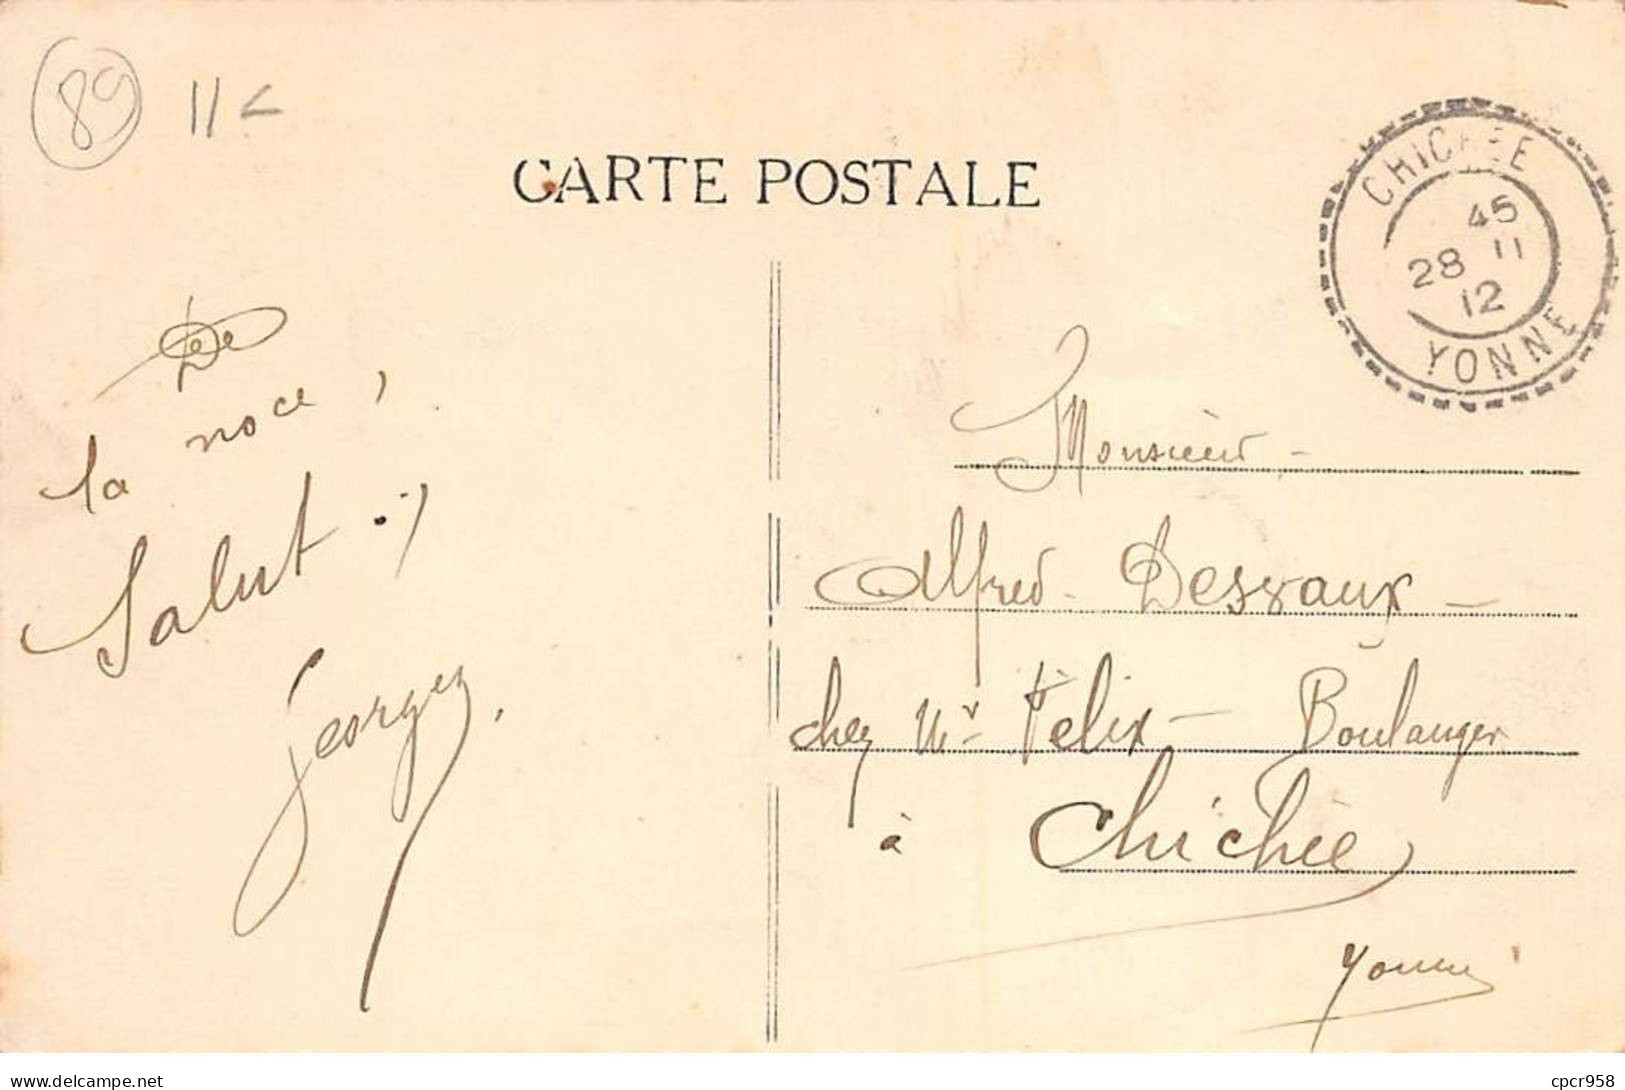 89 11 <
CARTE POSTALE
CHICHÉE
45
28 11
12
YONNE
De
la noce,
Salut.
Georges,
Monsieur -
Alfred - Desvaux -
chez Mr Félix - Boulanger
à Chichée
Yonne
www.delcampe.net
cpcr958